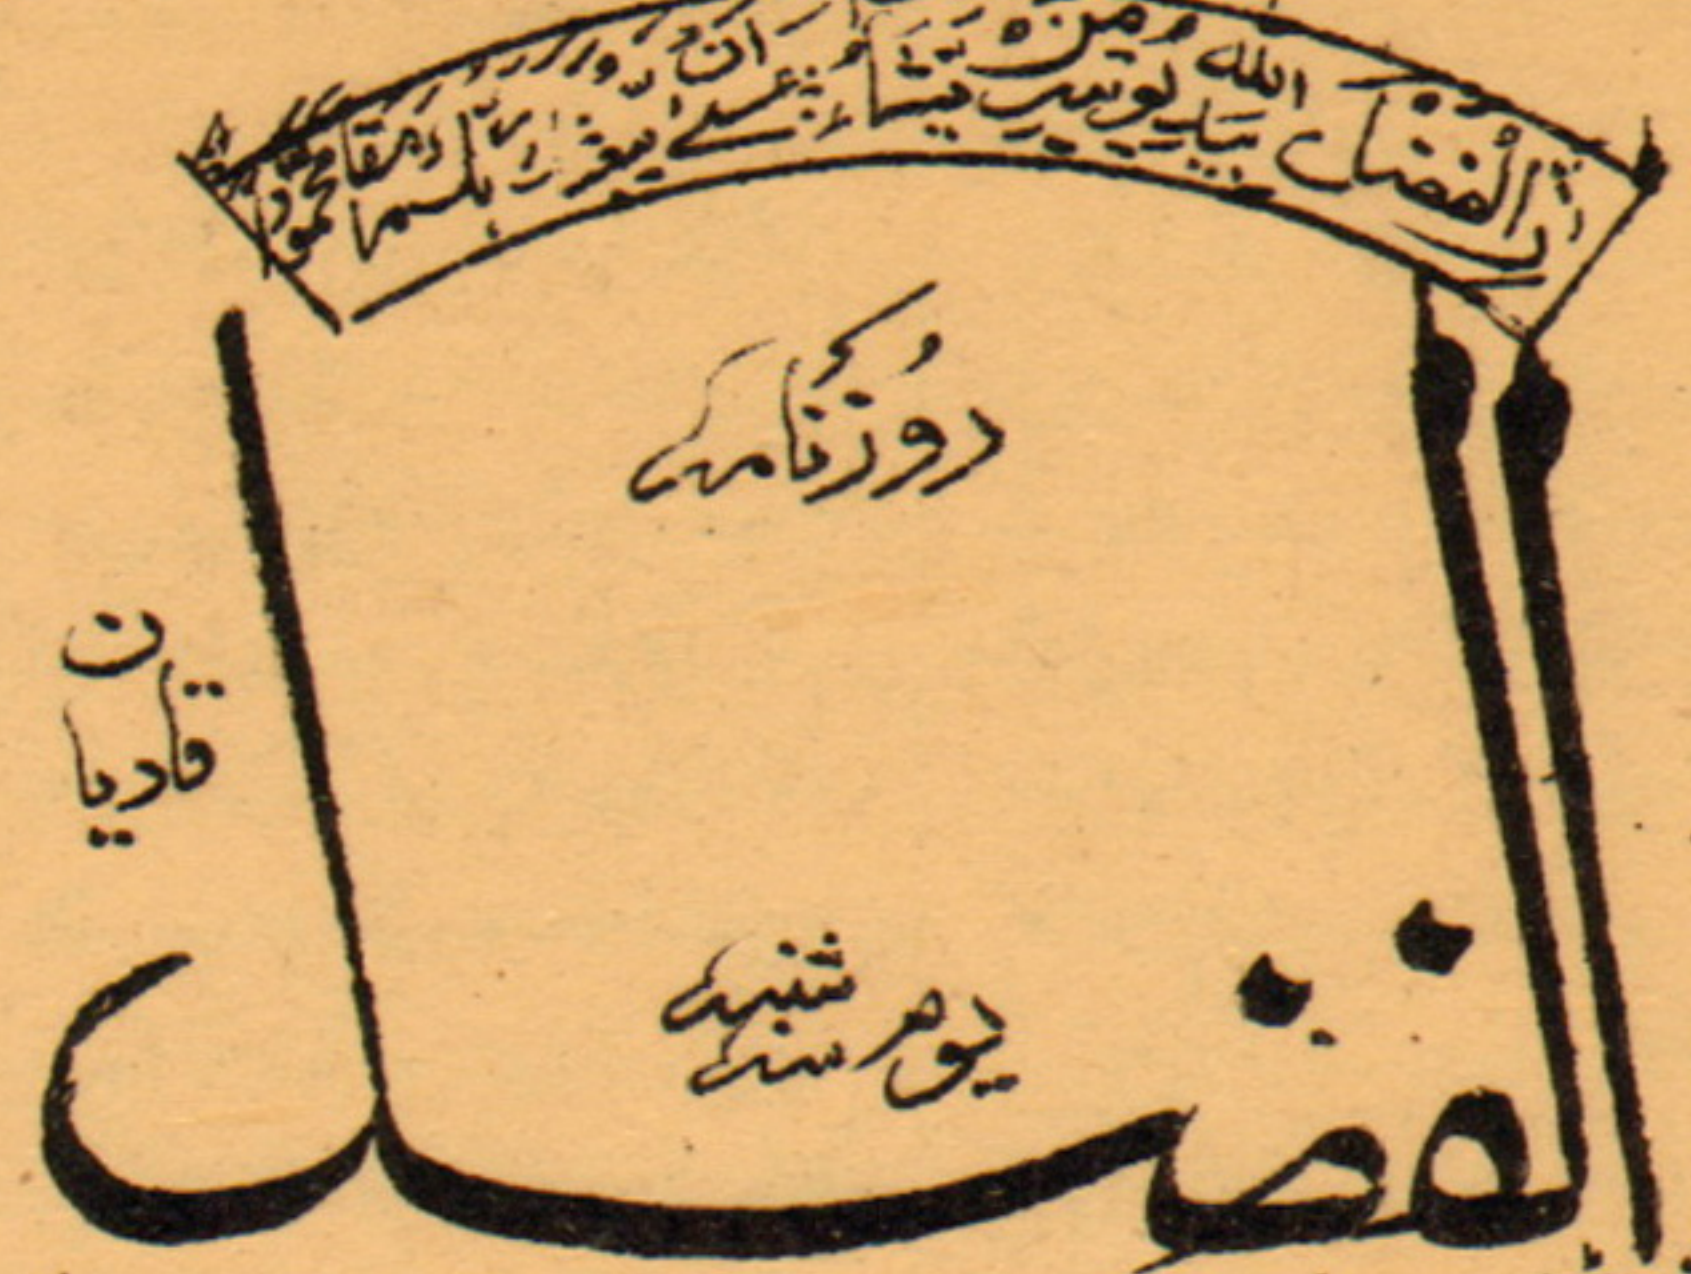 ان الفضل بيد الله يؤتيه من يشاء عسى ان يبعثك ربك مقاما محمودا
روزنامہ
الفضل
قادیان
یوم سہ شنبہ